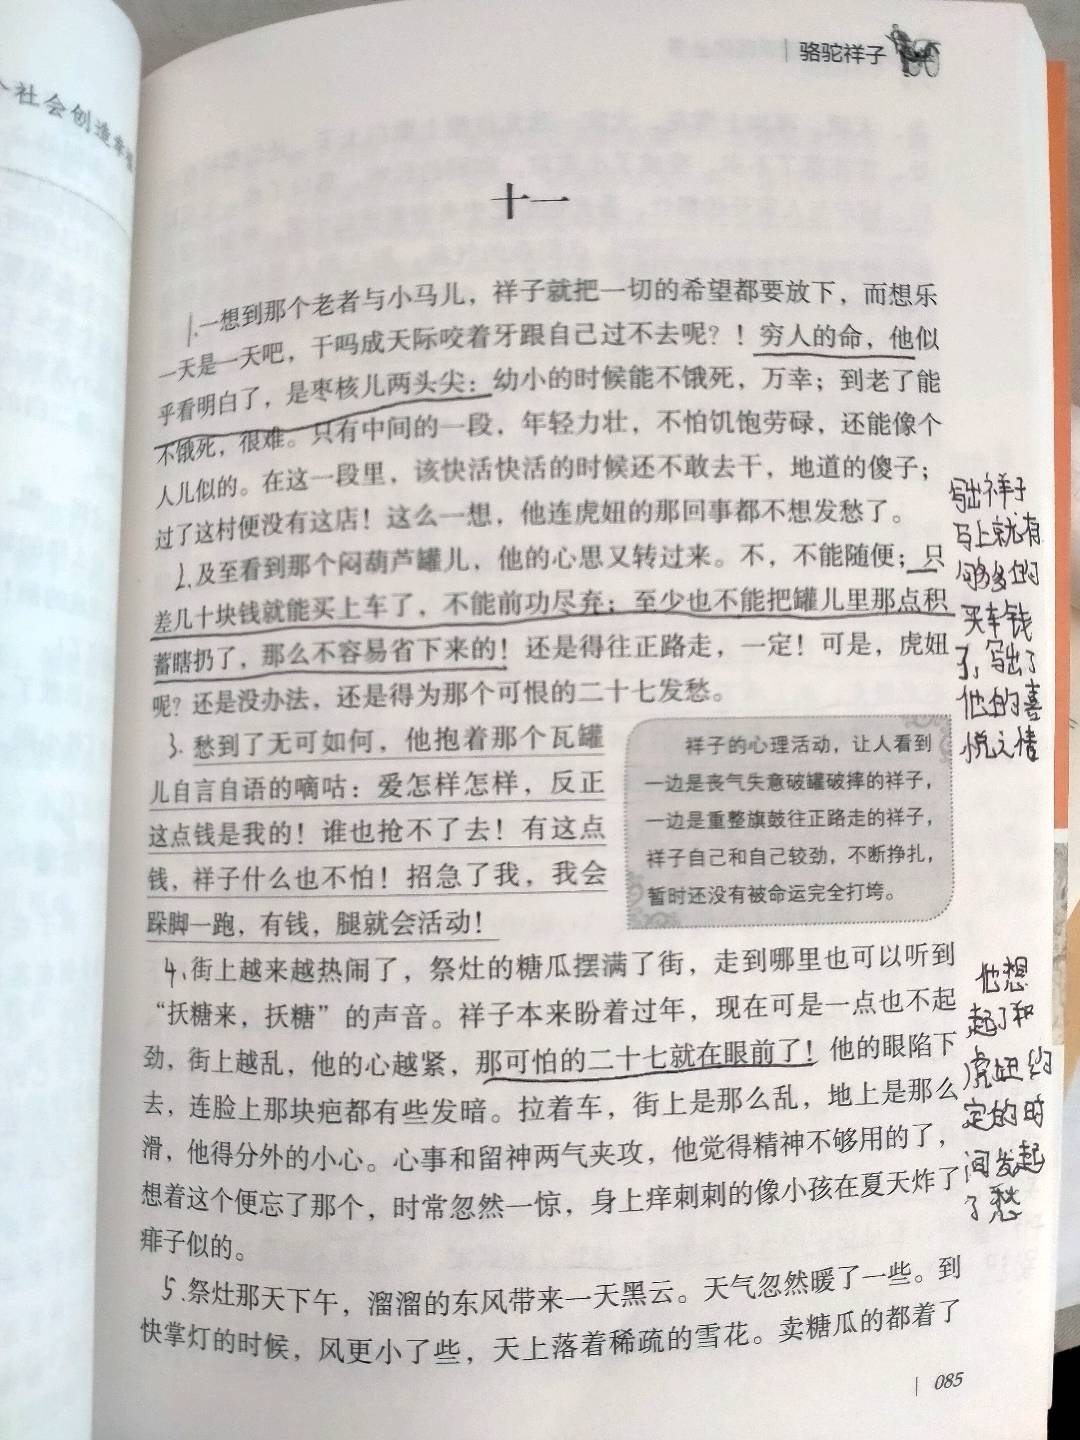 人社会创造幸福
骆驼祥子
十一
1.一想到那个老者与小马儿，祥子就把一切的希望都要放下，而想乐
一天是一天吧，干吗成天际咬着牙跟自己过不去呢？！穷人的命，他似
乎看明白了，是枣核儿两头尖：幼小的时候能不饿死，万幸；到老了能
不饿死，很难。只有中间的一段，年轻力壮，不怕饥饱劳碌，还能像个
人儿似的。在这一段里，该快活快活的时候还不敢去干，地道的傻子；
过了这村便没有这店！这么一想，他连虎妞的那回事都不想发愁了。
2.及至看到那个闷葫芦罐儿，他的心思又转过来。不，不能随便；只
差几十块钱就能买上车了，不能前功尽弃；至少也不能把罐儿里那点积
蓄瞎扔了，那么不容易省下来的！还是得往正路走，一定！可是，虎妞
呢？还是没办法，还是得为那个可恨的二十七发愁。
写出祥子
马上就有
够多的
买车钱
了，写出了
他的喜
悦之情
3.愁到了无可如何，他抱着那个瓦罐
儿自言自语的嘀咕：爱怎样怎样，反正
这点钱是我的！谁也抢不了去！有这点
钱，祥子什么也不怕！招急了我，我会
跺脚一跑，有钱，腿就会活动！
祥子的心理活动，让人看到
一边是丧气失意破罐破摔的祥子，
一边是重整旗鼓往正路走的祥子，
祥子自己和自己较劲，不断挣扎，
暂时还没有被命运完全打垮。
4、街上越来越热闹了，祭灶的糖瓜摆满了街，走到哪里也可以听到
“扷糖来，扷糖”的声音。祥子本来盼着过年，现在可是一点也不起
劲，街上越乱，他的心越紧，那可怕的二十七就在眼前了！他的眼陷下
去，连脸上那块疤都有些发暗。拉着车，街上是那么乱，地上是那么
滑，他得分外的小心。心事和留神两气夹攻，他觉得精神不够用的了，
想着这个便忘了那个，时常忽然一惊，身上痒刺刺的像小孩在夏天炸了
痱子似的。
他想
起了和
虎妞约
定的时
间发起
了愁
5.祭灶那天下午，溜溜的东风带来一天黑云。天气忽然暖了一些。到
快掌灯的时候，风更小了些，天上落着稀疏的雪花。卖糖瓜的都着了
085